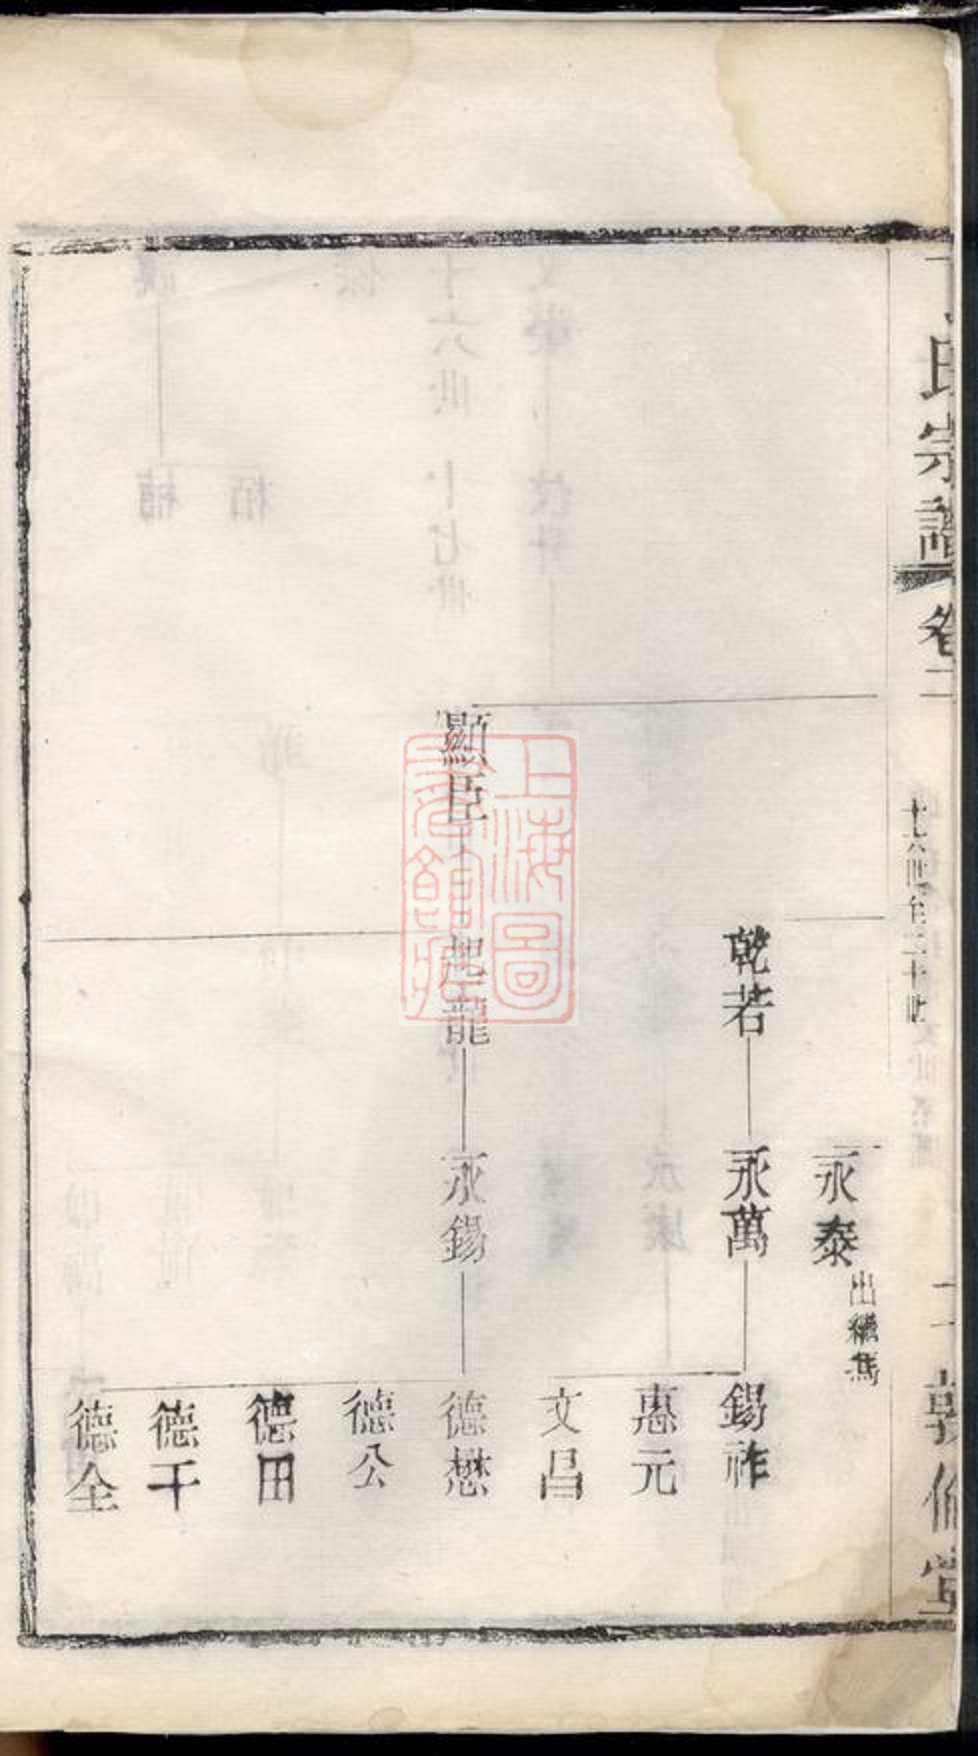 氏宗譜 卷二
十六世至二十世
敦倫堂
永泰
出繼
乾若
永萬
錫祚
惠元
文昌
顯臣
起龍
永錫
德懋
德公
德田
德干
德全
上海圖
書館藏